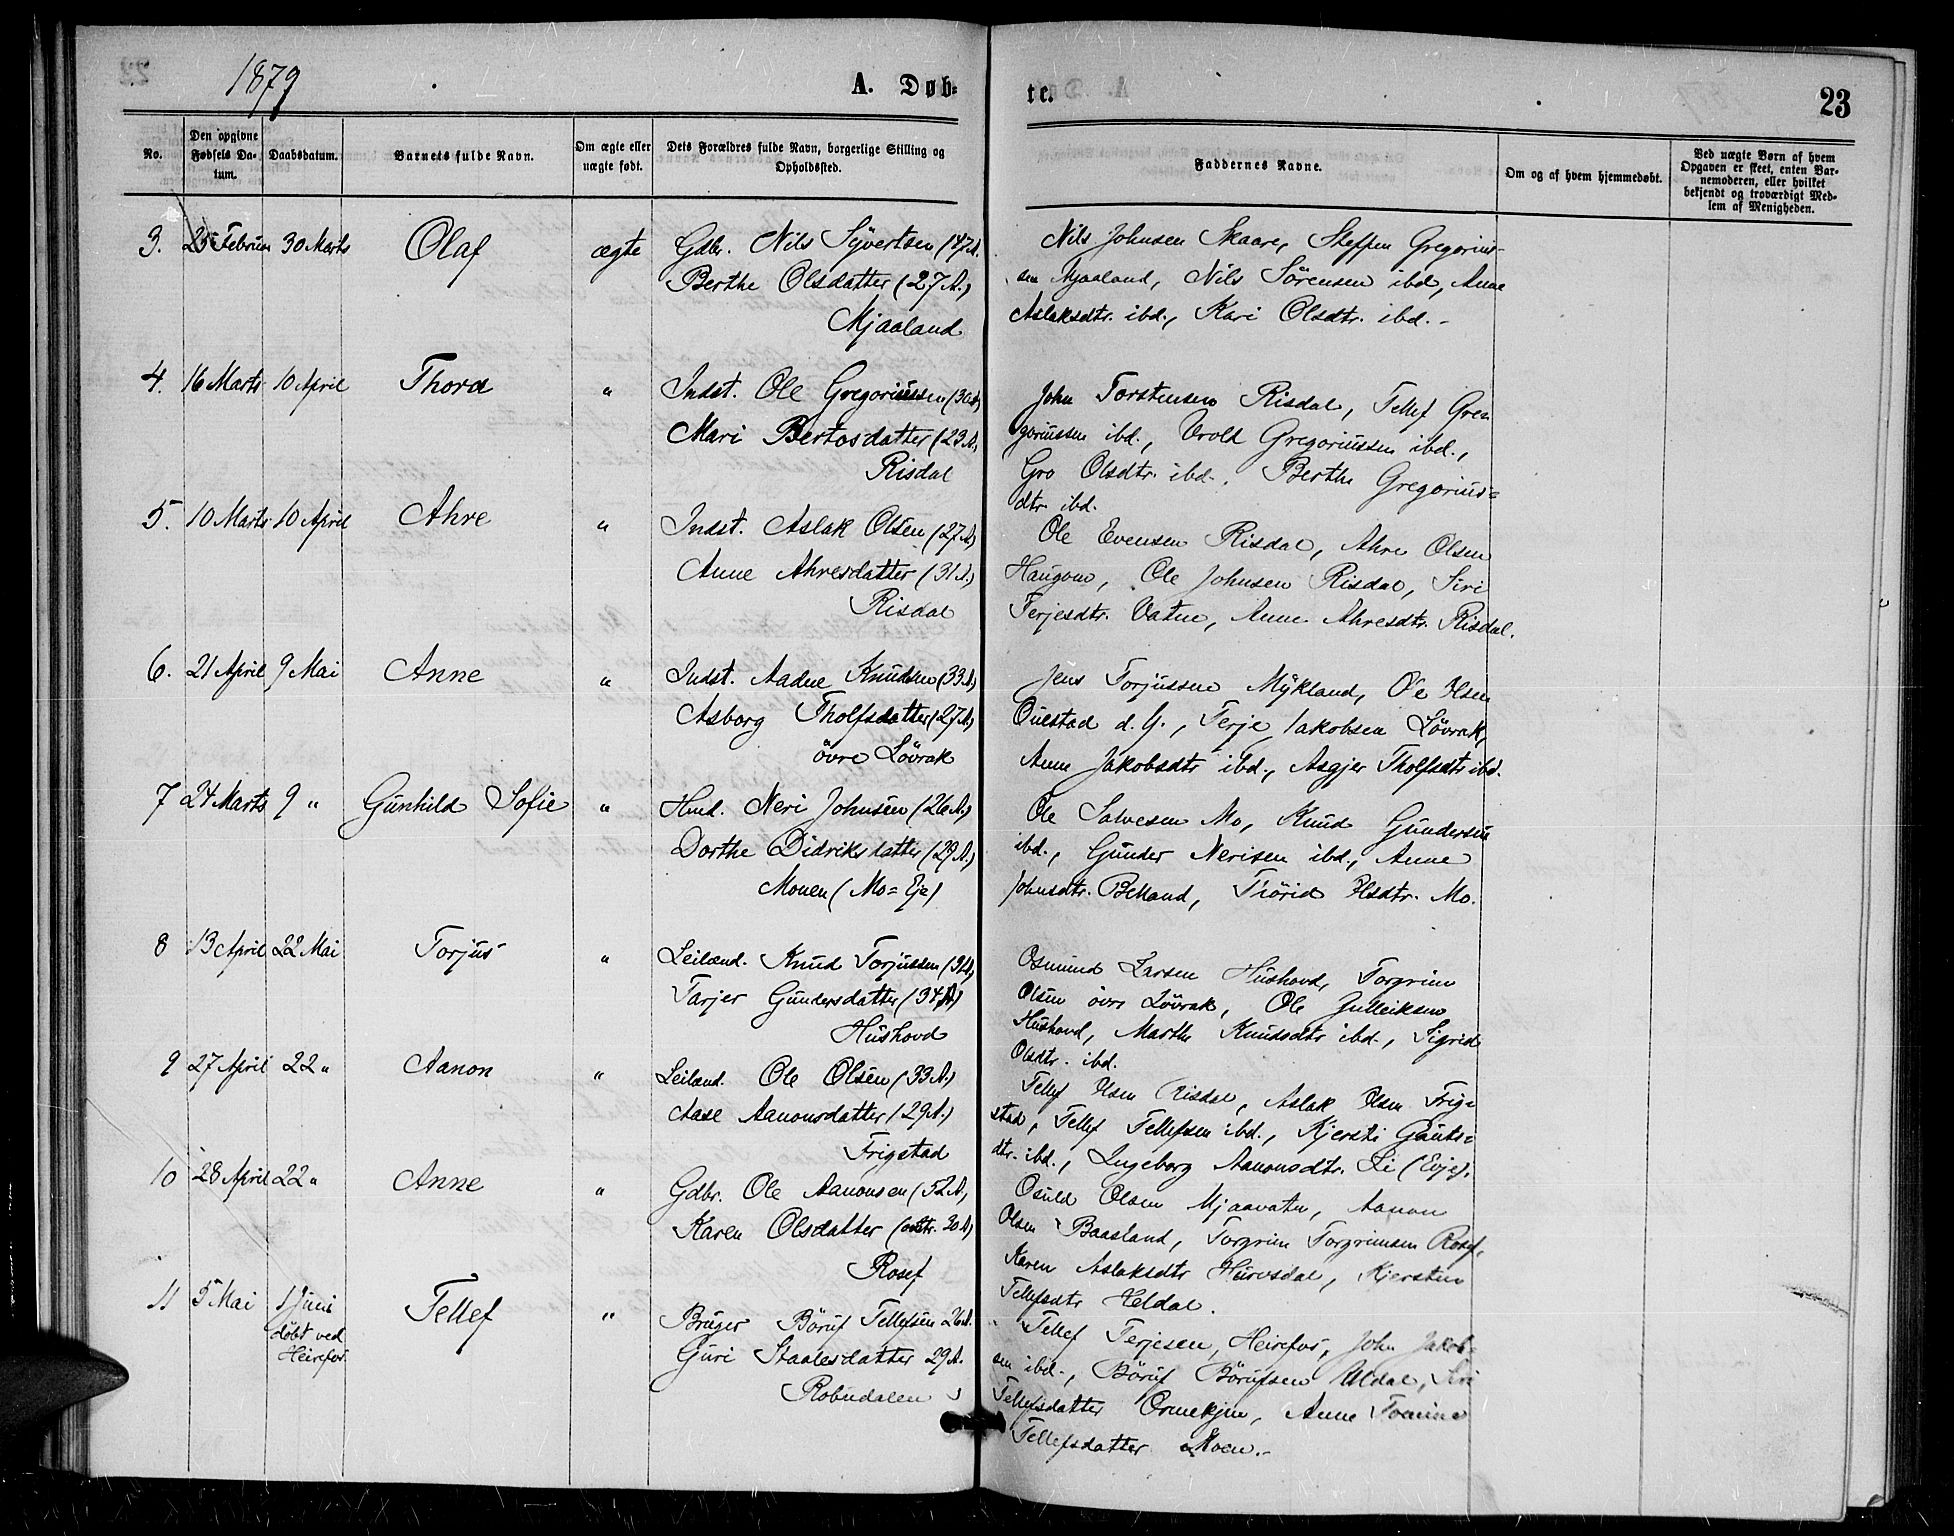 1879
A. Døb-
te.
23
No.
Den opgivne Fødsels Da-tum.
Daabsdatum.
Barnets fulde Navn.
Om ægte eller uægte født.
Dets Forældres fulde Navn, borgerlige Stilling og Opholdssted.
Faddernes Navne.
Om og af hvem hjemmedøbt.
Ved uægte Børn af hvem Opgaven er skeet, enten Bar-nemoderen, eller hvilket bekjendt og troværdigt Med-lem af Menigheden.
3. 25 Februar 30 Marts Olaf ægte Gdbr. Nils Syvertsen (47 A.
Berthe Olsdatter (27 A.)
Mjaaland
Nils Johnsen Skaare, Steffen Gregorius-
sen Mjaaland, Nils Sörensen ibd, Anne
Aslaksdtr. ibd., Kari Olsdtr. ibd.-
4. 16 Marts 10 April Thora " Indst. Ole Gregoriussen (30 A)
Mari Bertosdatter (23 A.
Risdal
John Torstensen Risdal, Tellef Gre-
goriussen ibd., Orold Gregoriussen ibd.,
Gro Olsdtr. ibd., Berthe Gregorius=
dtr. ibd.
5. 10 Marts 10 April Ahre " Indst. Aslak Olsen (27 A)
Anne Ahresdatter (31 A.)
Risdal
Ole Evensen Risdal, Ahre Olsen
Haugom, Ole Johnsen Risdal, Siri
Terjesdtr. Vatne, Anne Ahresdtr. Risdal.
6. 21 April 9 Mai Anne " Indst. Aadne Knudsen (33 A)
Asborg Tholfsdatter (27 A)
övre Lövrak
Jens Torjussen Mykland, Ole Olsen
Ouestad d. y., Terje Jakobsen Lövrak,
Anne Jakobsdtr ibd., Asgjer Tholfsdtr ibd.
7 24 Marts 9 " Gunhild Sofie " Hmd. Neri Johnsen (26 A.)
Dorthe Didriksdatter (29 A.)
Monen (Mo=Eje)
Ole Salvesen Mo, Knud Gundersen
ibd., Gunder Nerisen ibd., Anne
Johnsdtr. Belland, Thörid Olsdtr. Mo.
8 13 April 22 Mai Torjus " Leilænd. Knud Torjussen (31 A)
Tarjer Gundersdatter (34 A)
Hushovd
Osmund Larsen Hushovd, Torgrim
Olsen övre Lövrak, Ole Gulleiksen
Hushovd, Marthe Knudsdtr ibd., Sigrid
Olsdtr. ibd.
9 27 April 22 " Aanon " Leilænd. Ole Olsen (33 A.)
Aase Aanonsdatter (29 A.)
Frigstad
Tellef Olsen Risdal, Aslak Olsen Frig=
stad, Tellef Tellefsen ibd., Kjersti Gauts=
dtr. ibd., Ingeborg Aanonsdtr. Li (Evje).
10 28 April 22 " Anne " Gdbr. Ole Aanonsen (52 A,
Karen Olsdatter ( 30 A)
Rosef
Osuld Olsen Mjaavatn, Aanon
Olsen Baasland, Torgrim Torgrimsen Rosef,
Karen Aslaksdtr Hurvsdal, Kjersten
Tellefsdtr Heldal.
11 5 Mai 1 Juni Tellef " Bruger Böruf Tellefsen 26 A.
döbt ved
Heirefos.
Guri Staalesdatter 29 A.
Robudalen
Tellef Terjesen, Heirefos, John Jakob-
sen ibd., Böruf Börufsen Uldal, Siri
Tellefsdatter Ormekjen, Anne Tomine
Tellefsdatter Moen.-